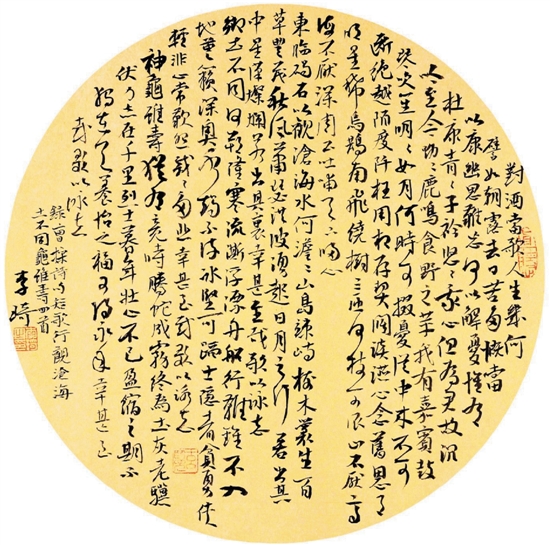 對酒當歌人生幾何
譬如朝露去日苦多慨當
以慷幽思難忘何以解憂惟有
杜康青青子衿悠悠我心但為君故沉
吟至今呦呦鹿鳴食野之苹我有嘉賓鼓
瑟吹笙明明如月何時可掇憂從中來不可
斷絕越陌度阡枉用相存契闊談讌心念舊恩月
明星稀烏鵲南飛繞樹三匝何枝可依山不厭高
海不厭深周公吐哺天下歸心
東臨碣石以觀滄海水何澹澹山島竦峙樹木叢生百
草豐茂秋風蕭瑟洪波湧起日月之行若出其
中星漢燦爛若出其裏幸甚至哉歌以咏志
鄉土不同河朔隆寒流澌浮漂舟船行難錐不入
地蘴藾深奧水竭不流冰堅可蹈士隱者貧勇俠
輕非心常歎怨戚戚多悲幸甚至哉歌以咏志
神龜雖壽猶有竟時騰蛇成霧終為土灰老驥
伏櫪志在千里烈士暮年壯心不已盈縮之期不
獨在天養怡之福可得永年幸甚至
哉歌以咏志
錄曹操詩句短歌行觀滄海
土不同龜雖壽四首
李琦